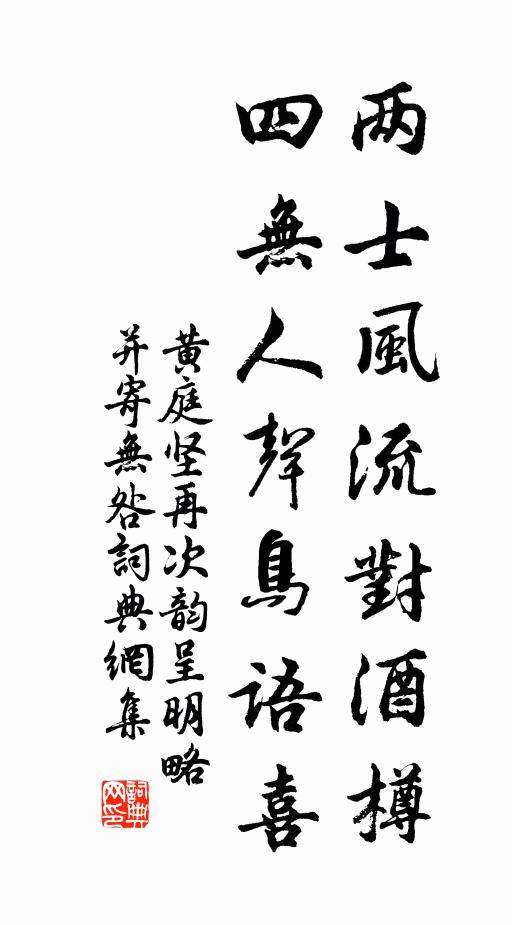 两士風流對酒樽
四無人聲鳥語喜
黄庭坚再次韵呈明略
并寄無咎詞典網集
詞典
网印